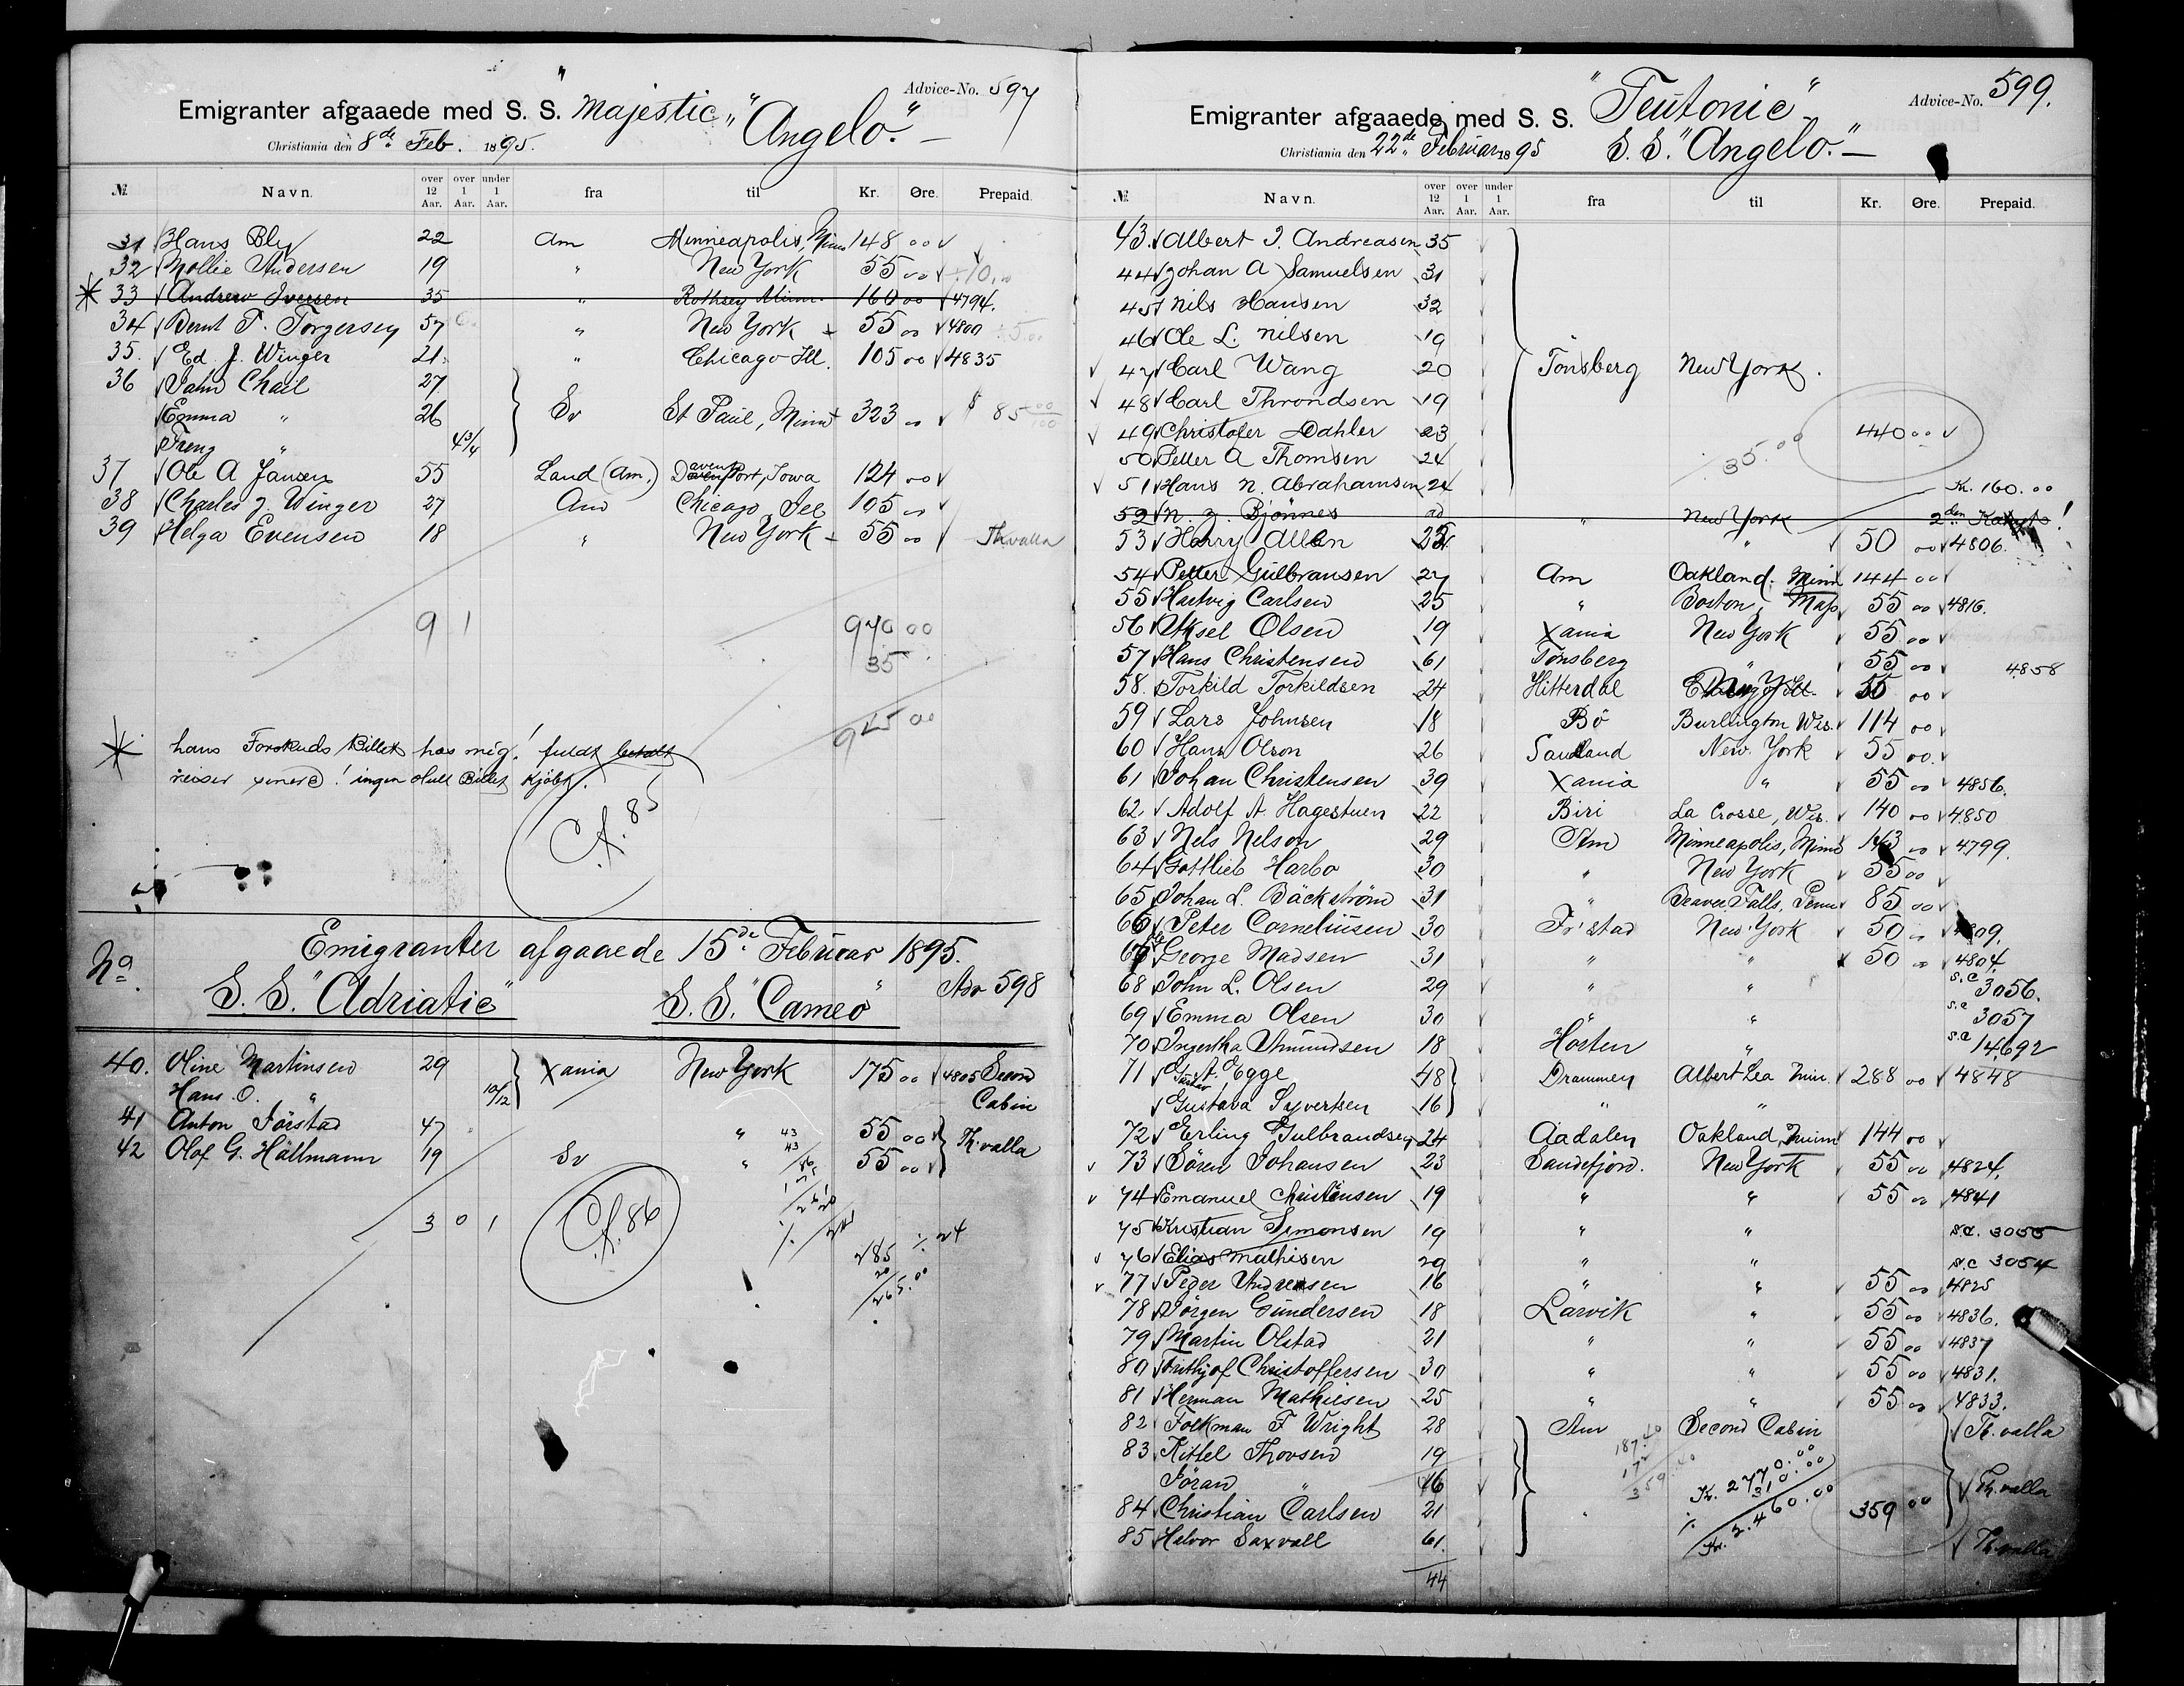 Advice-No. 597
Emigranter afgaaede med S. S. "Majestic" "Angelo".—
Christiania den 8de Feb. 1895.
№ Navn. over 12 Aar. over 1 Aar. under 1 Aar. fra til Kr. Øre. Prepaid.
31 Hans Bly 22 Am Minneapolis, Minn 148 00
32 Mollie Andersen 19 " New York 55 00 ÷10,00
33 Andrew Iversen 35 " Rothsey Minn. 160 00 4794.
34 Bernt T. Torgersen 57 " New York 55 00 4800
35. Ed. J. Winger 21 " Chicago Ill. 105 00 4835
36 John Chail 27
Emma " 26 Sv St Paul, Minn 323 00 $ 85 00/100
" 4 3/4
37 Ole A Jansen 55 Land (Am.) Davenport, Iowa 124 00
38 Charles J. Winger 27 Am Chicago Ill 105 00
39 Helga Evensen 18 " New York 55 00 Th.valla
9 1 970 00
35
00
hans Forskuds Billet hos mig! fuldt betalt
reiser senere! ingen Hull Billet kjöbt.
C.f. 85
No. Emigranter afgaaede 15de Februar 1895.
S. S. "Adriatic" S. S. "Cameo" Adv 598
40. Oline Martinsen 29 Xania New York 175 00 4805 Second
Hans O. " 10/12 Cabin
41 Anton Förstad 47 " 55 00 Th.valla
42 Olof G. Hallmann 19 Sv " 55 00
3 0 1 C.f. 86
285 ÷ 24
20
265.00
Advice-No. 599.
Emigranter afgaaede med S. S. "Teutonic"
Christiania den 22de Februar 1895 S. S. "Angelo".—
№ Navn. over 12 Aar. over 1 Aar. under 1 Aar. fra til Kr. Øre. Prepaid.
43. Albert I. Andreasen 35
44 Johan A Samuelsen 31
45 Nils Hansen 32
46 Ole L. Nilsen 19
47 Carl Wang 20 Tönsberg New York.
48 Carl Throndsen 19
49 Christofer Dahler 23 440 00
50 Petter A Thomsen 24 35.00
51 Hans N. Abrahamsen 24 Kr. 160.00
52 N. J. Bjönnes " New York 2den !
53 Harry Allen " 50 00 4806.
54 Petter Gulbransen 27 Am Oakland. Minn 144 00
55 Hartvig Carlsen 25 " Boston, Mass 55 00 4816.
56 Aksel Olsen 19 Xania New York 55 00
57 Hans Christensen 61 Tönsberg " 55 00 4858
58. Torkild Torkildsen 24 Hitterdal 55 00
59 Lars Johnsen 18 Bö Burlington Wis. 114 00
60 Hans Olson 26 Sauland New York 55 00
61 Johan Christensen 39 Xania " 55 00 4856.
62. Adolf A. Hagestuen 22 Biri La Crosse, Wis. 140 00 4850
63 Nels Nelson 29 Am Minneapolis, Minn 00 4799.
64 Gottlieb Harbo 30 " New York 55 00
65 Johan L. Bäckström 31 " Beaver Falls, Penn 85 00
66 Peter Corneliusen 30 Fr'stad New York 50 00
67 George Madsen 31 " " 50 00 4804.
68 John L. Olsen 29 " " s.c 3056.
69 Emma Olsen 30 " " s.c 3057
70 Ingertha Amundsen 18 Horten " s.c 14692
71 A. Egge 48 Drammen Albert Lea Minn. 288 00 4848
Gustava Syvertsen 16 " "
72 Erling Gulbrandsen 24 Aadalen Oakland, Minn 144 00
73 Sören Johansen 23 Sandefjord. New York 55 00 4824.
74 Emanuel Christensen 19 " " 55 00 4841
75 Kristian Simonsen 19 " " s.c. 3055
76 Elias Mathisen 29 " " s.c 3054
77 Peder Andresen 16 " " 55 00 4825
78 Jörgen Gundersen 18 Larvik " 55 00 4836.
79 Martin Olstad 21 " " 55 00 4837
80 Frithjof Christoffersen 30 " " 55 00 4831.
81 Herman Mathiesen 25 " " 55 00 4833.
82 Folkman F Wright 28 Am Second Cabin Th.valla
83 Kittel Thovsen 19
Jöran " 16 Kr. 2770.00 Th.valla
84 Christian Carlsen 21 " 310.00 359 00
85 Halvor Saxvall 61. Kr. 2.460.00 Th.valla
44